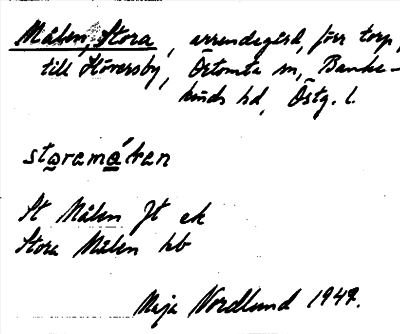 Målen, Stora, arrendegård, förr torp,
till Höversby, Örtomta sn, Banke-
kinds hd, Östg. l.
storamå´ḷan
St Målen Jt ek
Stora Målen hb
Maja Nordlund 1947.